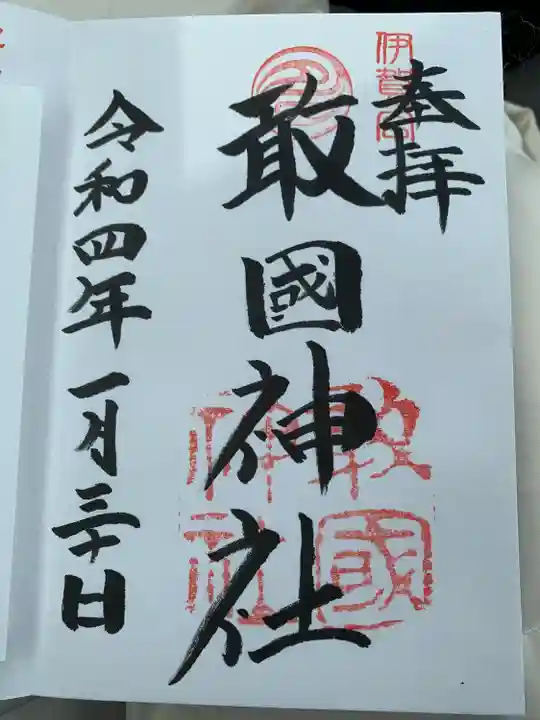 奉拝
敢國神社
令和四年一月三十日
敢國神社